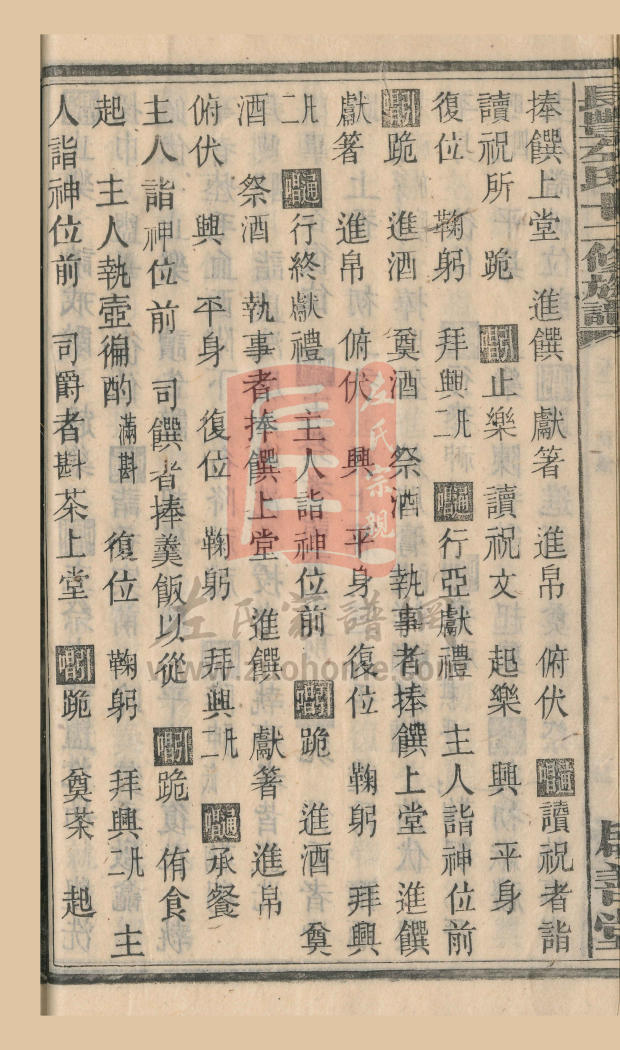 捧饌上堂 進饌 獻箸 進帛 俯伏 通唱 讀祝者詣
讀祝所 跪 引唱 止樂 讀祝文 起樂 興 平身
復位 鞠躬 拜興二凡 通唱 行亞獻禮 主人詣神位前
引唱 跪 進酒 奠酒 祭酒 執事者捧饌上堂 進饌
獻箸 進帛 俯伏 興 平身 復位 鞠躬 拜興
二凡 通唱 行終獻禮 主人詣神位前 引唱 跪 進酒 奠
酒 祭酒 執事者捧饌上堂 進饌 獻箸 進帛
俯伏 興 平身 復位 鞠躬 拜興二凡 通唱 承餐
主人詣神位前 司饌者捧羹飯以從 引唱 跪 侑食
起 主人執壺徧酌 滿斟 復位 鞠躬 拜興二凡 主
人詣神位前 司爵者斟茶上堂 引唱 跪 奠茶 起
左氏十二修族譜
善堂
左氏宗親
左氏家譜網
www.zuohome.com